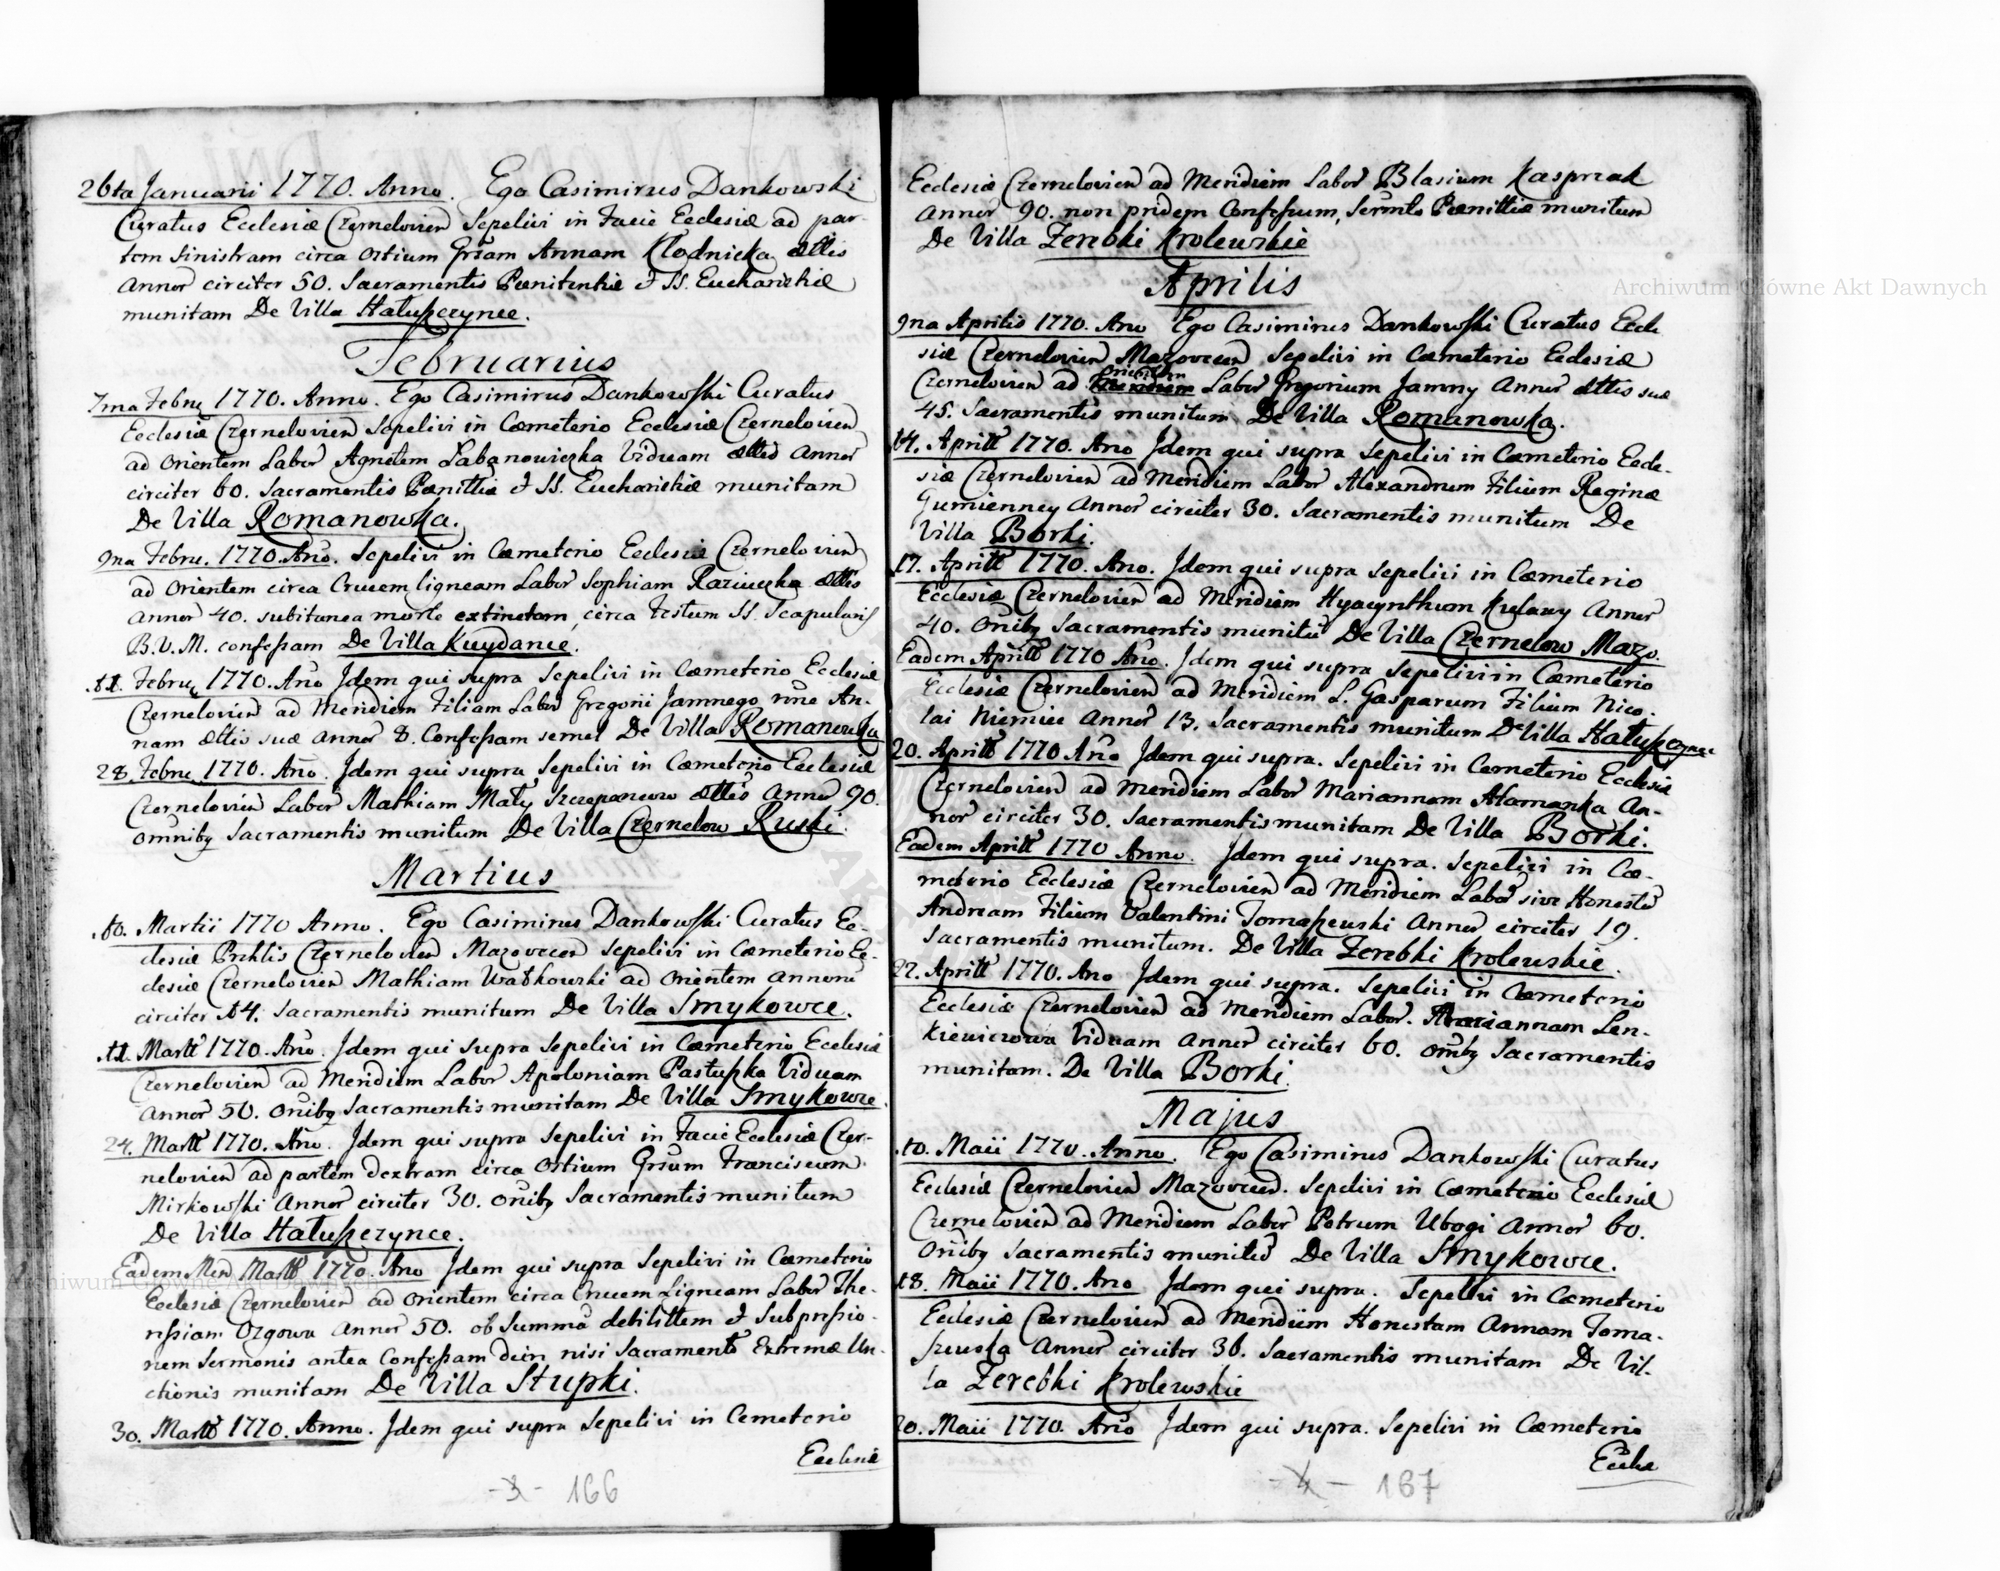 26ta Januarii 1770. Anno. Ego Casimirus Dankowski
Curatus Ecclesiæ Czernelovien Sepelivi in facie Ecclesiæ ad par-
tem sinistram circa Ostium Grsam Annam Kłodnicka ættis
Annor circiter 50. Sacramentis Pænitentiæ et SS. Eucharistiæ
munitam De Villa Hałuszczynce.
Februarius
7ma Febru 1770. Anno. Ego Casimirus Dankowski Curatus
Ecclesiæ Czernelovien Sepelivi in Cæmeterio Ecclesiæ Czernelovien
ad Orientem Labor Agnetem Łabanowiczka Viduam ættis Annor
circiter 60. Sacramentis Pænittiæ et SS. Eucharistiæ munitam
De Villa Romanowka.
9na Febru. 1770. Ano. Sepelivi in Cæmeterio Ecclesiæ Czernelovien
ad Orientem circa Crucem ligneam Labor Sophiam Raziuczka ættis
Annor 40. subitanea morte extinctam, circa festum SS. Scapularis
B.V.M. confessam De Villa Kuydance.
11. Febru 1770. Ano Idem qui supra Sepelivi in Cæmeterio Ecclesiæ
Czernelovien ad Meridiem Filiam Labor Gregorii Jamnego nne An-
nam ættis suæ Annor 8. Confessam semel De Villa Romanowka
28. Febru 1770. Ano. Idem qui supra Sepelivi in Cæmeterio Ecclesiæ
Czernelovien Labor Mathiam Mały Szczepanow ættis Annor 90.
omniby Sacramentis munitum De Villa Czernelow Ruski.
Martius
10. Martii 1770 Anno. Ego Casimirus Dankowski Curatus Ec-
clesiæ Prchlis Czernelovien Mazovecen Sepelivi in Cæmeterio Ec-
clesiæ Czernelovien Mathiam Wabkowski ad Orientem Annorum
circiter 14. Sacramentis munitum De Villa Smykowce.
11. Martt 1770. Ano. Idem qui supra Sepelivi in Cæmeterio Ecclesiæ
Czernelovien ad Meridiem Labor Apoloniam Pastuszka Viduam
Annor 50. Oniby Sacramentis munitam De Villa Smykowce.
24. Martt 1770. Ano. Idem qui supra Sepelivi in Facie Ecclesiæ Czer-
nelovien ad partem dextram circa Ostium Grsum Franciscum
Mirkowski Annor circiter 30. Oniby Sacramentis munitum
De Villa Hałuszczynce.
Eadem Men Martt 1770. Ano Idem qui supra Sepelivi in Cæmeterio
Ecclesiæ Czernelovien ad Orientem circa Crucem Ligneam Labor The-
ressiam Ozgowa Annor 50. ob Summa debilittem et Subpressio-
nem Sermonis antea Confessam dein nisi Sacramento Extremæ Un-
ctionis munitam De Villa Stupki.
30. Martt 1770. Anno. Idem qui supra Sepelivi in Cemeterio
Ecclesiæ
166
Ecclesiæ Czernelovien ad Meridiem Labor Blasium Kasprzak
Annor 90. non pridem Confessum, Sermto Pœnittiæ munitum
De Villa Zerebki Krolewskie
Aprilis
9na Aprilis 1770. Ano Ego Casimirus Dankowski Curatus Eccle
siæ Czernelovien Mazovecen Sepelivi in Cæmeterio Ecclesiæ
Orientem
Czernelovien ad Meridiem Labor Gregorium Jamny Annor ættis suæ
45. Sacramentis munitum De Villa Romanowka.
14. Aprill 1770. Ano Idem qui supra Sepelivi in Cæmeterio Eccle-
siæ Czernelovien ad Meridiem Labor Alexandrum Filium Reginæ
Gumienney Annor circiter 30. Sacramentis munitum De
Villa Borki.
17. Aprill 1770. Ano. Idem qui supra Sepelivi in Cæmeterio
Ecclesiæ Czernelovien ad Meridiem Hyacynthum Kulawy Annor
40. Oniby Sacramentis munitu De Villa Czernelow Mazo.
Eadem Aprill 1770 Ano. Idem qui supra Sepelivi in Cæmeterio
Ecclesiæ Czernelovien ad Meridiem L. Gasparum Filium Nico-
lai Niemiec Annor 13. Sacramentis munitum De Villa Hałuszczynce
20. Aprill 1770 Ano Idem qui supra. Sepelivi in Cemeterio Ecclesiæ
Czernelovien ad Meridiem Labor Mariannam Atamanka An-
nor circiter 30. Sacramentis munitam De Villa Borki.
Eadem Aprill 1770 Anno. Idem qui supra. Sepelivi in Cæ-
meterio Ecclesiæ Czernelovien ad Meridiem Labor sive Honestu
Andream Filium Valentini Tomaszewski Annor circiter 19.
Sacramentis munitum. De Villa Zerebki Krolewskie.
22. Aprill 1770. Ano Idem qui supra. Sepelivi in Cæmeterio
Ecclesiæ Czernelovien ad Meridiem Labor. Mariannam Len-
kiewiczowa Viduam Annor circiter 60. omby Sacramentis
munitam. De Villa Borki.
Majus
10. Maii 1770. Anno. Ego Casimirus Dankowski Curatus
Ecclesiæ Czernelovien Mazovecen. Sepelivi in Cæmeterio Ecclesiæ
Czernelovien ad Meridiem Labor Petrum Ubogi Annor 60.
Oniby Sacramentis munitu De Villa Smykowce.
18. Maii 1770. Ano Idem qui supra. Sepelivi in Cæmeterio
Ecclesiæ Czernelovien ad Meridiem Honestam Annam Toma-
szewska Annor circiter 36. Sacramentis munitam De Vil-
la Zerebki Krolewskie
20. Maii 1770. Ano Idem qui supra. Sepelivi in Cæmeterio
Eccliæ
167
Archiwum Główne Akt Dawnych
Archiwum Główne Akt Dawnych